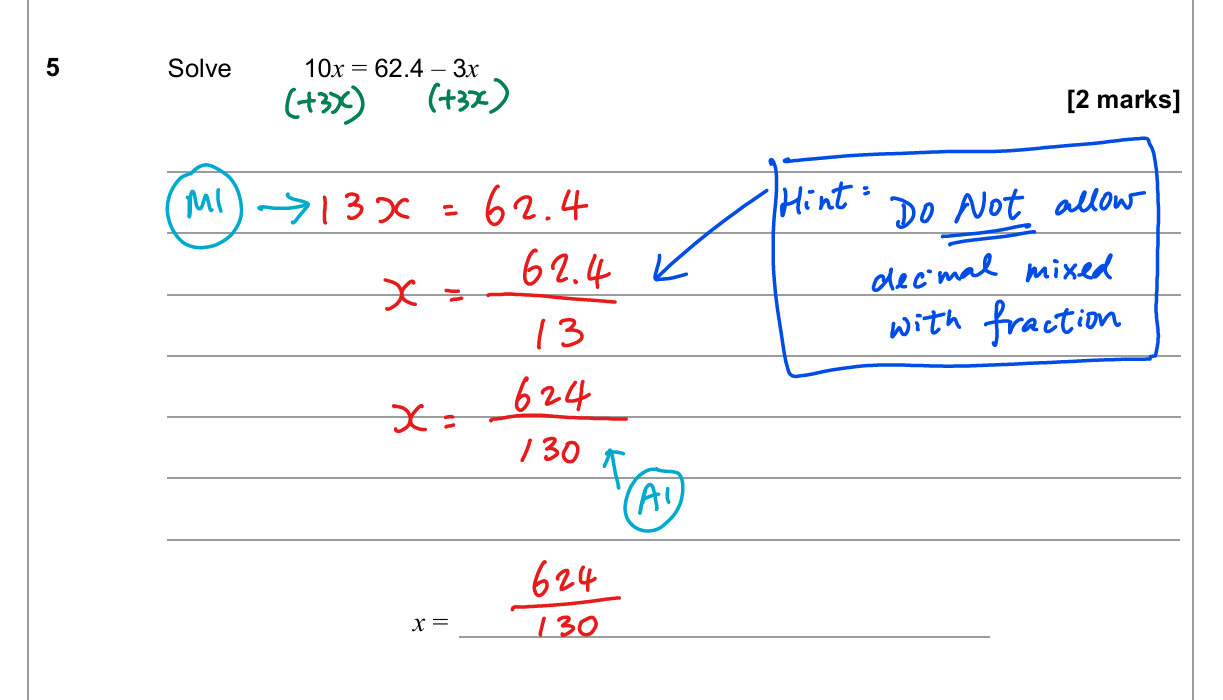 5 Solve 10x = 62.4 – 3x
(+3x) (+3x)
[2 marks]
M1 → 13x = 62.4
Hint: Do NOT allow
decimal mixed
with fraction
x = 62.4/13
x = 624/130
A1
x = 624/130